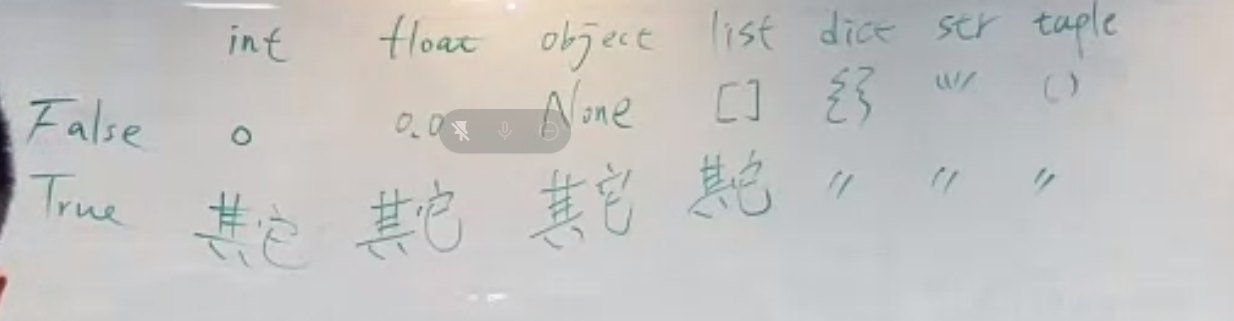 int float object list dict str taple
False 0 0.0 None [] {} "" ()
True 其它 其它 其它 其它 〃 〃 〃